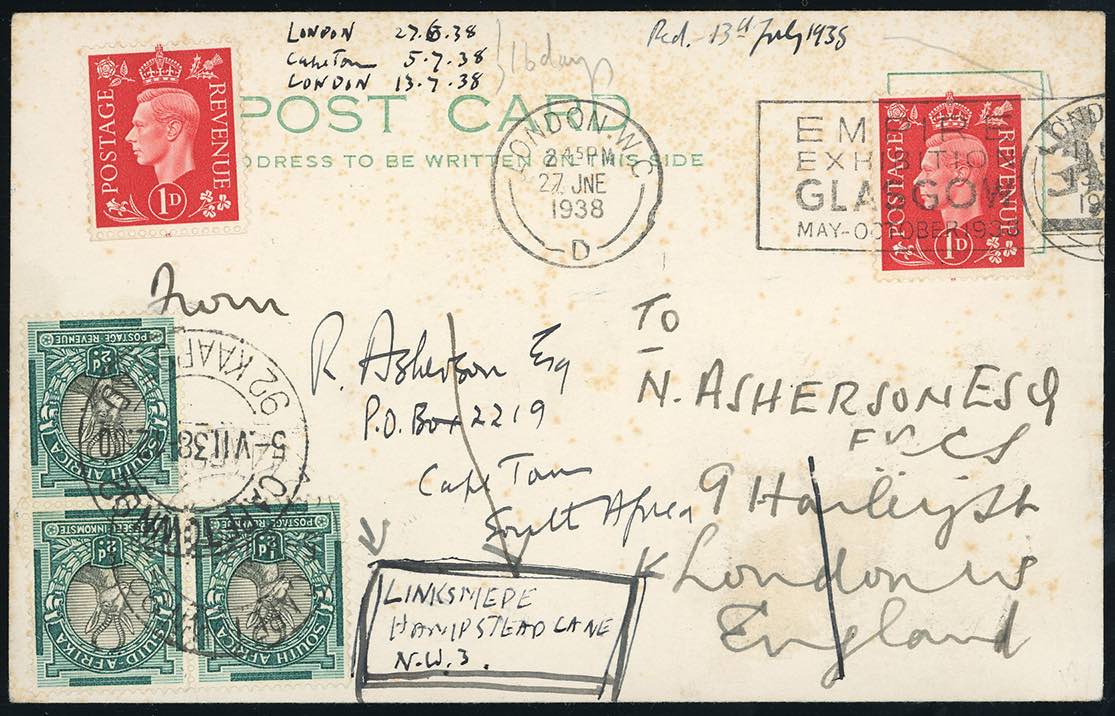 LONDON 27.6.38
Cape Town 5.7.38
LONDON 13.7.38
16 days
Red. 13th July 1938
POST CARD
ADDRESS TO BE WRITTEN ON THIS SIDE
POSTAGE REVENUE
1D
LONDON W.C.
2.45 PM
27 JNE
1938
D
EMPIRE
EXHIBITION
GLASGOW
MAY-OCTOBER 1938
POSTAGE REVENUE
1D
From
R. Asherson Esq
P.O. Box 2219
Cape Town
South Africa
To
N. ASHERSON ESQ
FRCS
9 Harley St
London W1
England
LINKSMEDE
HAMPSTEAD LANE
N.W.3.
POSTAGE REVENUE
½D
SOUTH AFRICA
5-VII.38
SUID-AFRIKA
½D
POSSEEL-INKOMSTE
SOUTH AFRICA
½D
POSTAGE REVENUE